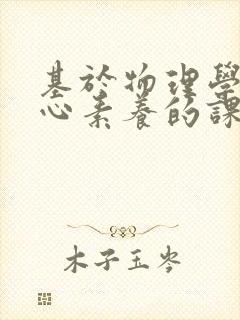 基於物理學
心素養的課
木子玉岑